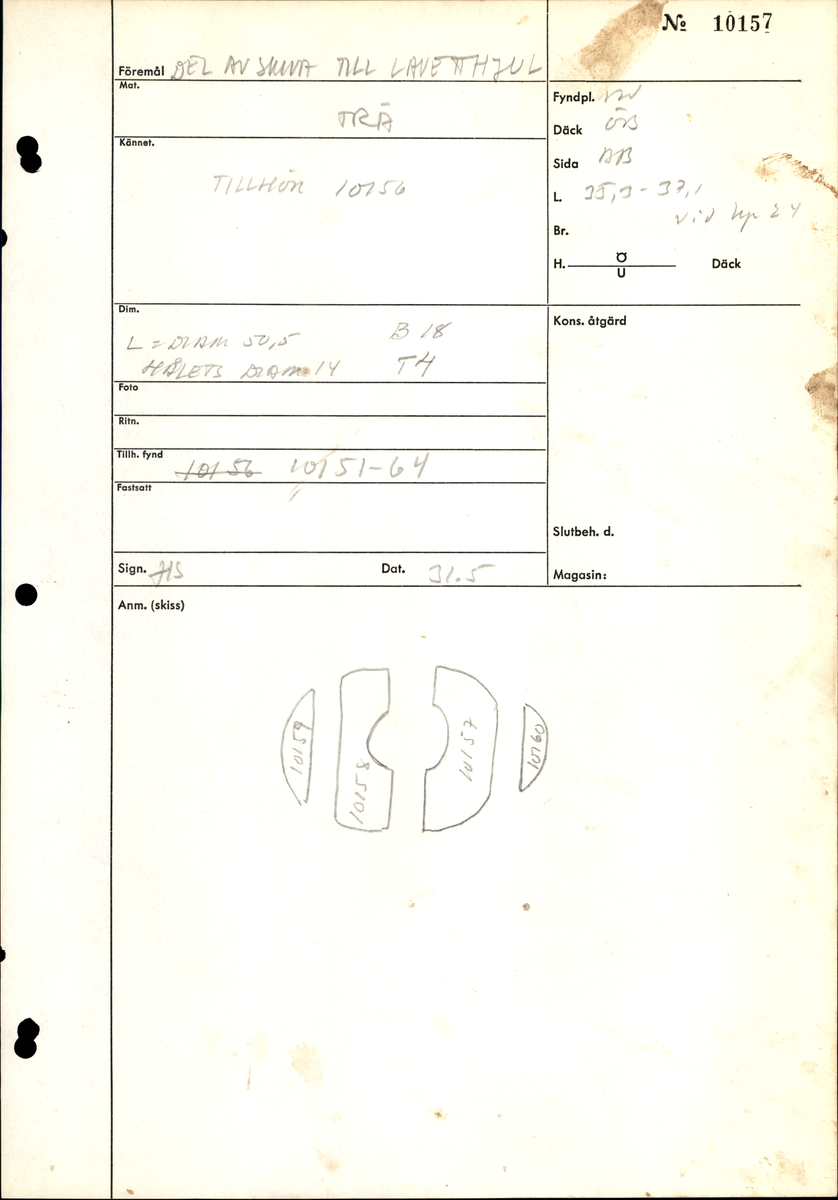 № 10157
Föremål DEL AV SKIVA TILL LAVETTHJUL
Mat.
TRÄ
Kännet.
TILLHÖR 10156
Fyndpl.
Däck ÖB
Sida BB
L. 35,3-37,1
vid kp 24
Br.
H. Ö
U
Däck
Dim.
L = DIAM 50,5 B 18
HÅLETS DIAM 14 T4
Foto
Ritn.
Tillh. fynd 10156 10151-64
Fastsatt
Sign. HS Dat. 31.5
Kons. åtgärd
Slutbeh. d.
Magasin:
Anm. (skiss)
10159
10158
10157
10160